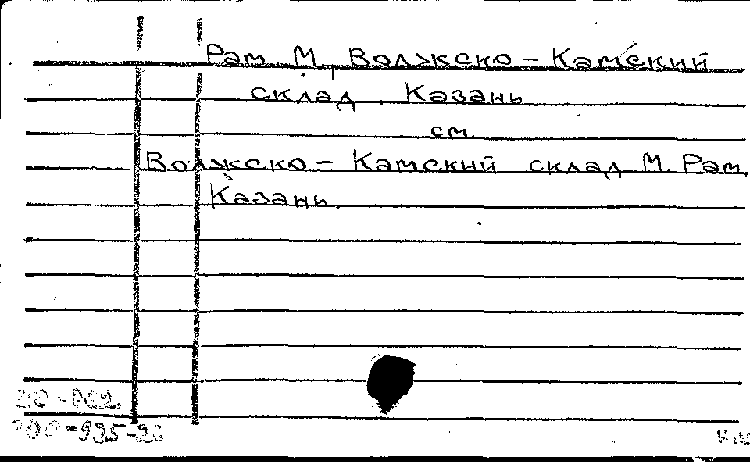 Рам М, Волжско-Камский
склад. Казань
см
Волжско-Камский склад М. Рам.
Казань.